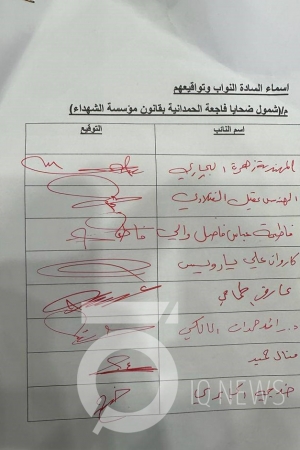 اسماء السادة النواب وتواقيعهم
م/(شمول ضحايا فاجعة الحمدانية بقانون مؤسسة الشهداء)
اسم النائب
التوقيع
المهندسة زهرة البجاري
المهندس عقيل الفتلاوي
فاطمة عباس فاضل
كاروان علي يارويس
عارف
د. احمد المالكي
منال حميد
IQ NEWS